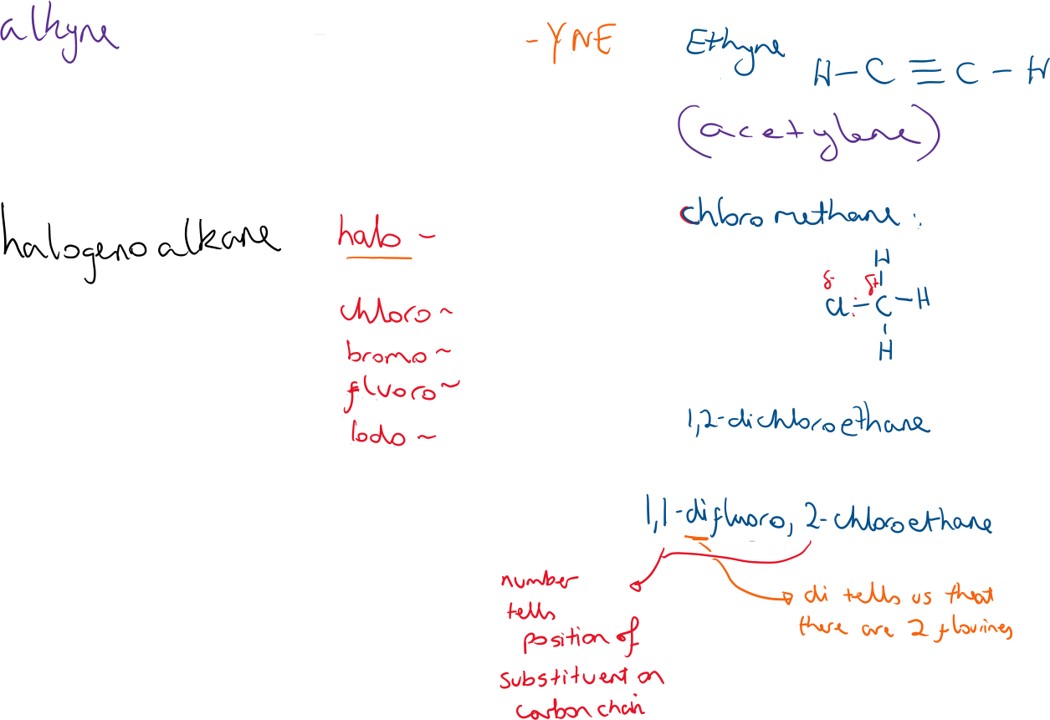 alkyne
-YNE
Ethyne
H-C≡C-H
(acetylene)
halogenoalkane
halo -
chloro ~
bromo ~
fluoro ~
Iodo ~
chloromethane :
H
δ- δ+
Cl:-C-H
H
1,2-dichloroethane
1,1-difluoro, 2-chloroethane
number
tells
position of
substituent on
carbon chain
di tells us that
there are 2 flourines